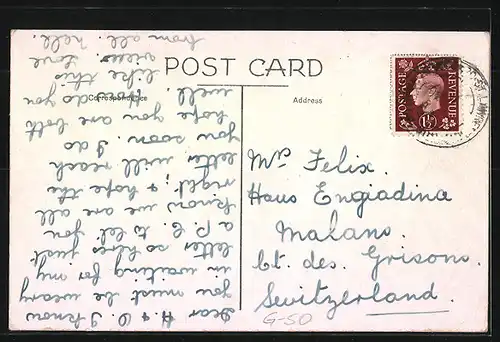 POST CARD
Correspondence
Address
POSTAGE REVENUE
1½D
Dear H & O. I know
you must be weary
in waiting for my
letter so heres just
a P.C. to let you
know we are all
right; & hope the
letter will reach
you soon. I do
hope you are both
well. do you
like this
view. Love
from all. Nell.
Mrs Felix.
Haus Engiadina
Malans.
Ct. des. Grisons.
Switzerland.
G-50